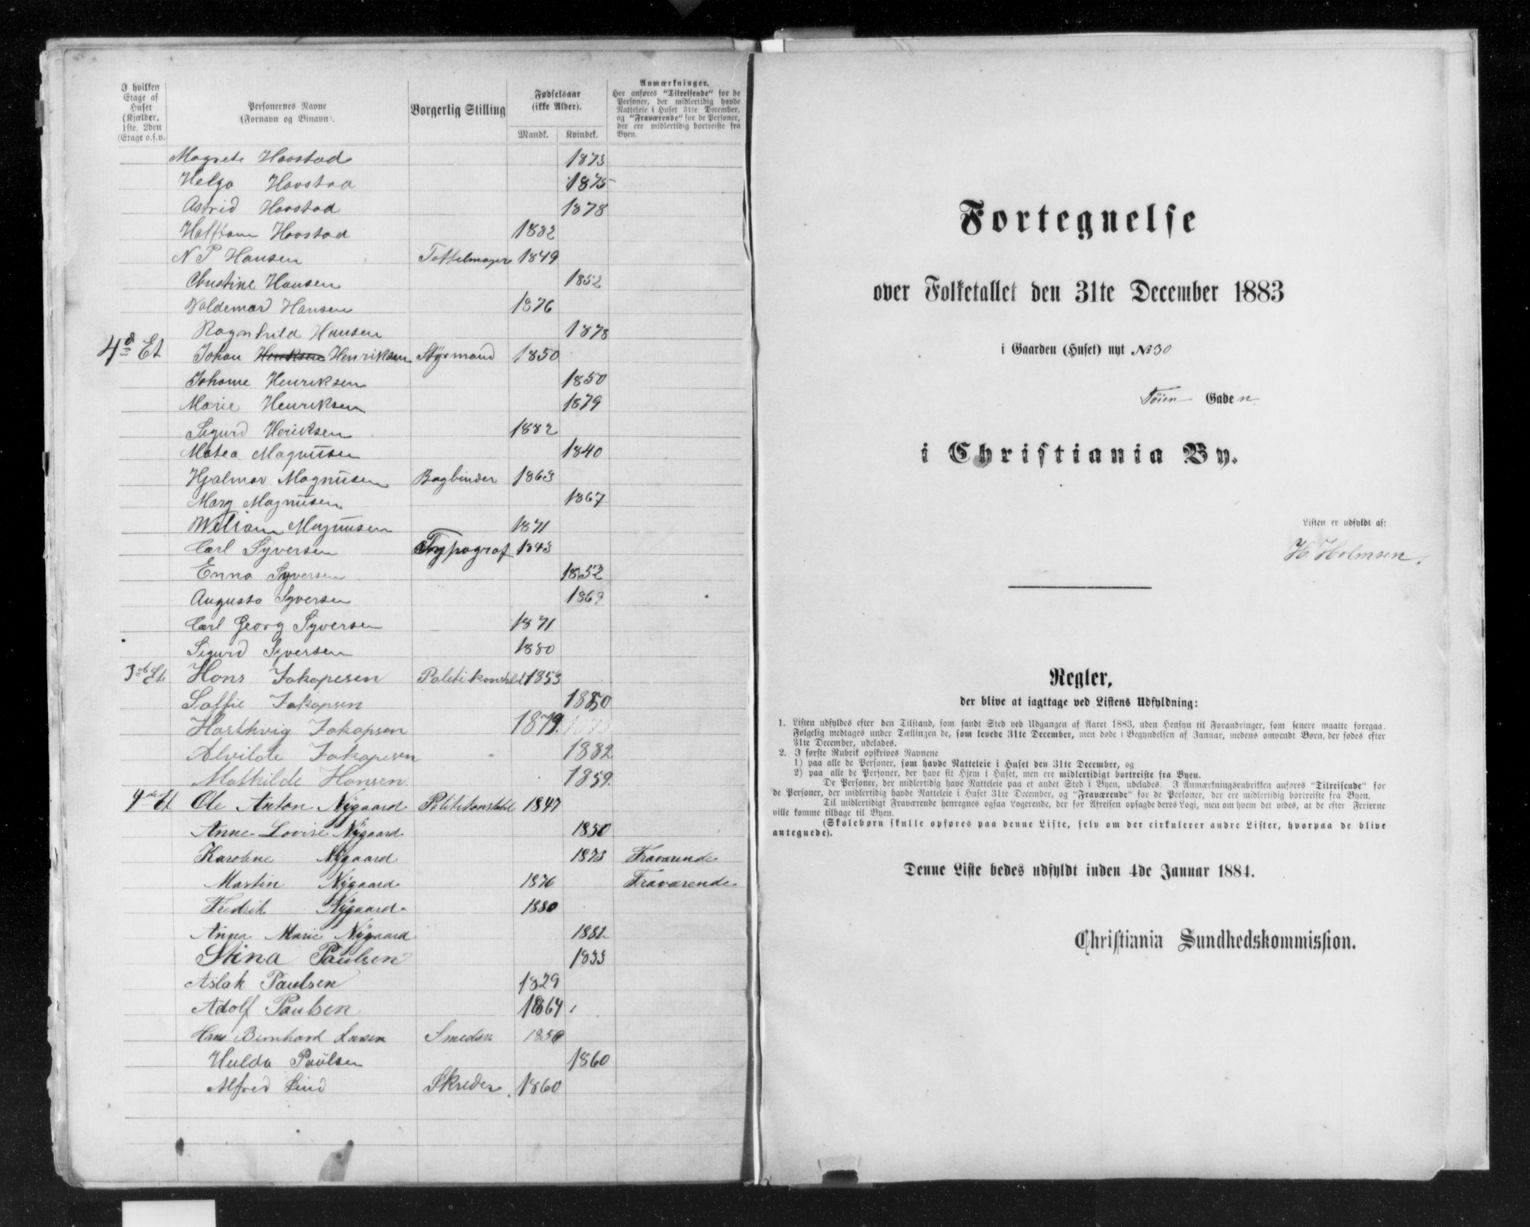 I hvilken
Etage af
Huset
(Kjælder,
1ste, 2den
Etage o.s.v.
Personernes Navne
(Fornavn og Binavn).
Borgerlig Stilling
Fødselsaar
(ikke Alder).
Mandk. Kvindek.
Anmærkninger.
Her anføres "Tilreisende" for de
Personer, der midlertidig havde
Natteleie i Huset 31te December,
og "Fraværende" for de Personer,
der ere midlertidig bortreiste fra
Byen.
Magrete Hovstad 1873
Helga Hovstad 1875
Astrid Hovstad 1878
Halfdan Hovstad 1882
N P Hansen Tøffelmager 1849
Christine Hansen 1852
Valdemar Hansen 1876
Ragnhild Hansen 1878
4d Et Johan Henriksen Henriksen Styrmand 1850
Johanne Henriksen 1850
Marie Henriksen 1879
Sigurd Henriksen 1882
Matea Magnusen 1840
Hjalmar Magnusen Bogbinder 1863
Marg Magnusen 1867
William Magnusen 1871
Carl Syversen Typograf 1843
Enna Syversen 1852
Augusta Syversen 1869
Carl Georg Syversen 1871
Sigurd Syversen 1880
3de Et Hans Jakopsen Politikonstbl 1853
Soffie Jakopsen 1850
Harthvig Jakopsen 1879
Alvilde Jakopsen 1882
Mathilde Hansen 1859
4de Et Ole Anton Nygaard Politikonstbl 1847
Anne Lovise Nygaard 1850
Karoline Nygaard 1873 Fraværende
Martin Nygaard 1876 Fraværende
Fredrik Nygaard 1880
Anna Marie Nygaard 1882
Stina Paulsen 1833
Aslak Paulsen 1829
Adolf Paulsen 1864
Hans Bernhard Larsen Smedsv 1858
Hulda Paulsen 1860
Alfred Lind Skreder 1860
Fortegnelse
over Folketallet den 31te December 1883
i Gaarden (Huset) nyt No 30
Tøien Gaden
i Christiania By.
Listen er udfyldt af:
H Holmsen.
Regler,
der blive at iagttage ved Listens Udfyldning:
1. Listen udfyldes efter den Tilstand, som fandt Sted ved Udgangen af Aaret 1883, uden Hensyn til Forandringer, som senere maatte foregaa.
Følgelig medtages under Tællingen de, som levede 31te December, men døde i Begyndelsen af Januar, medens omvendt Børn, der fødes efter
31te December, udelades.
2. I første Rubrik opskrives Navnene
1) paa alle de Personer, som havde Natteleie i Huset den 31te December, og
2) paa alle de Personer, der have sit Hjem i Huset, men ere midlertidig bortreiste fra Byen.
De Personer, der midlertidig have Natteleie paa et andet Sted i Byen, udelades. I Anmærkningsrubriken anføres "Tilreisende" for
de Personer, der midlertidig havde Natteleie i Huset 31te December, og "Fraværende" for de Personer, der ere midlertidig bortreiste fra Byen.
Til midlertidigt Fraværende henregnes ogsaa Logerende, der før Afreisen opsagde deres Logi, men om hvem det vides, at de efter Ferierne
ville komme tilbage til Byen.
(Skolebørn skulle opføres paa denne Liste, selv om der cirkulerer andre Lister, hvorpaa de blive
antegnede).
Denne Liste bedes udfyldt inden 4de Januar 1884.
Christiania Sundhedskommission.